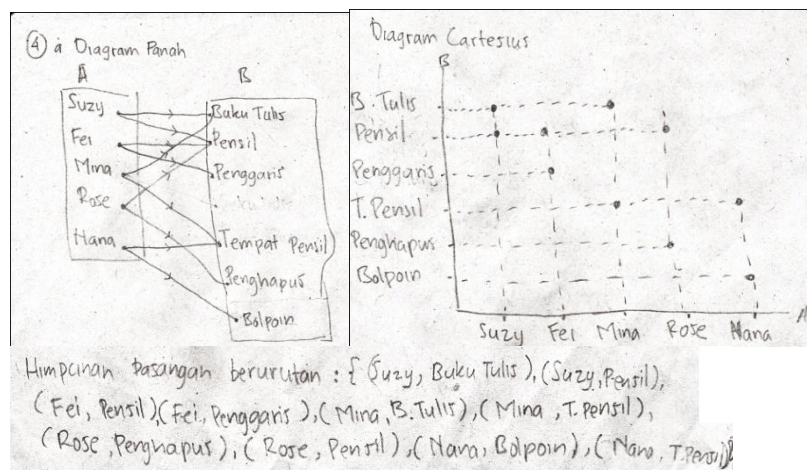 ④ a Diagram Panah
A B
Suzy
Fei
Mina
Rose
Hana
Buku Tulis
Pensil
Penggaris
Tempat Pensil
Penghapus
Bolpoin
Diagram Cartesius
B
B. Tulis
Pensil
Penggaris
T. Pensil
Penghapus
Bolpoin
A
Suzy Fei Mina Rose Nana
Himpunan Pasangan berurutan : { (Suzy, Buku Tulis), (Suzy, Pensil),
(Fei, Pensil),(Fei, Penggaris), (Mina, B. Tulis), (Mina, T. Pensil),
(Rose, Penghapus), (Rose, Pensil), (Nana, Bolpoin), (Nana, T. Pensil)}